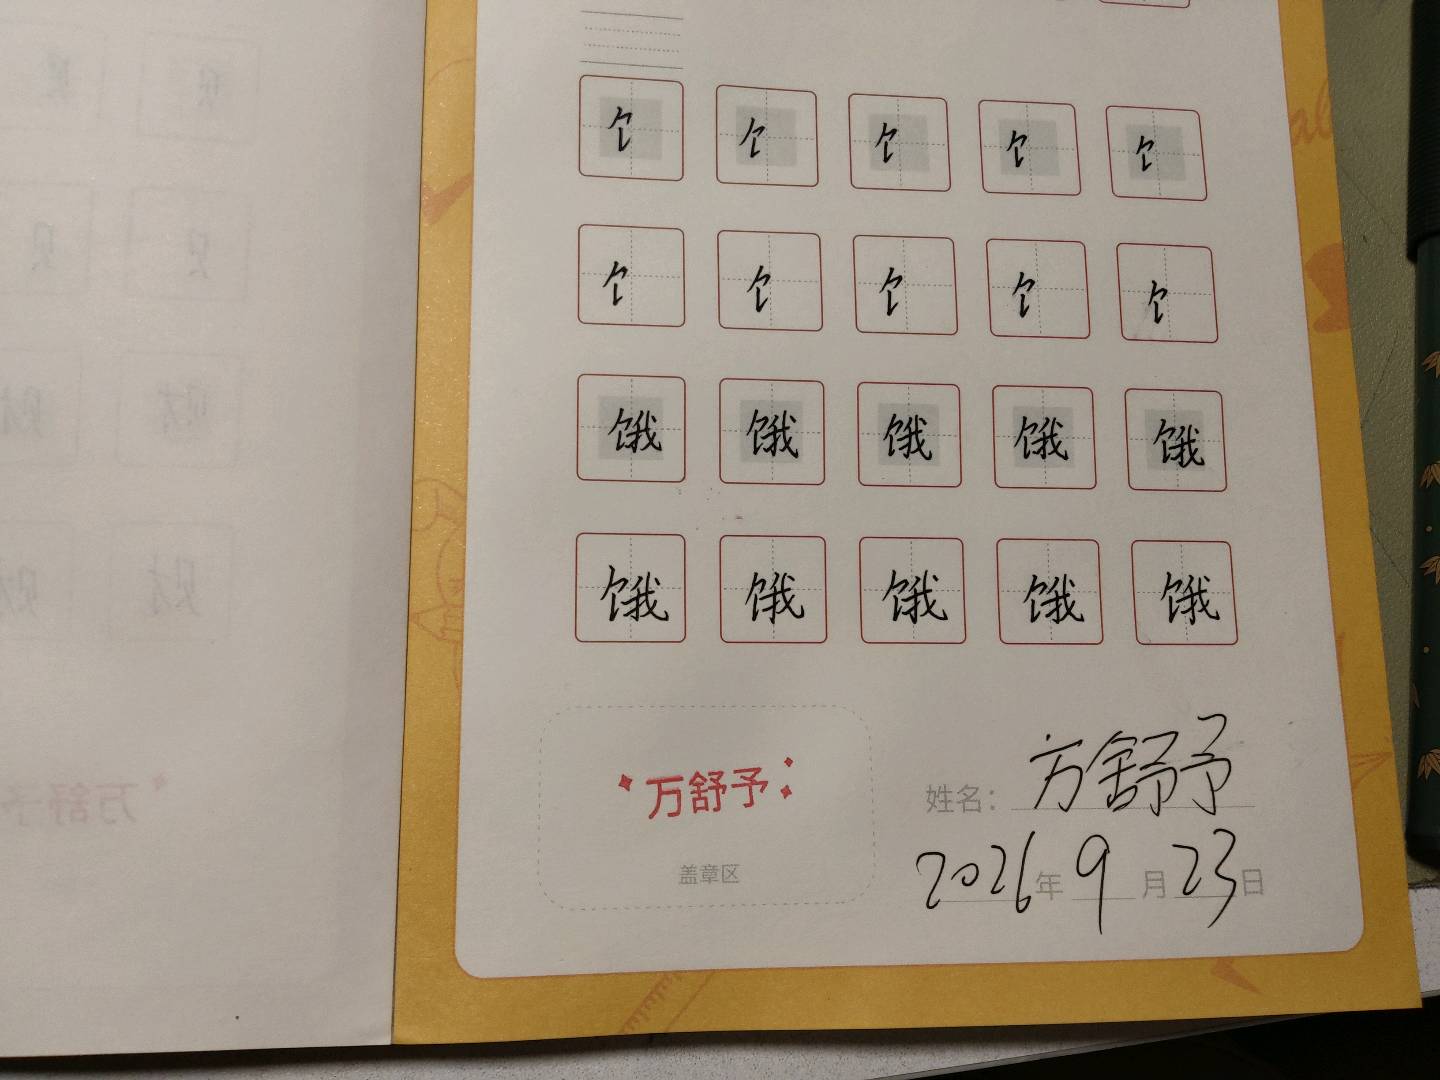 饣 饣 饣 饣 饣
饣 饣 饣 饣 饣
饿 饿 饿 饿 饿
饿 饿 饿 饿 饿
万舒予
盖章区
姓名: 万舒予
2026年 9月 23日